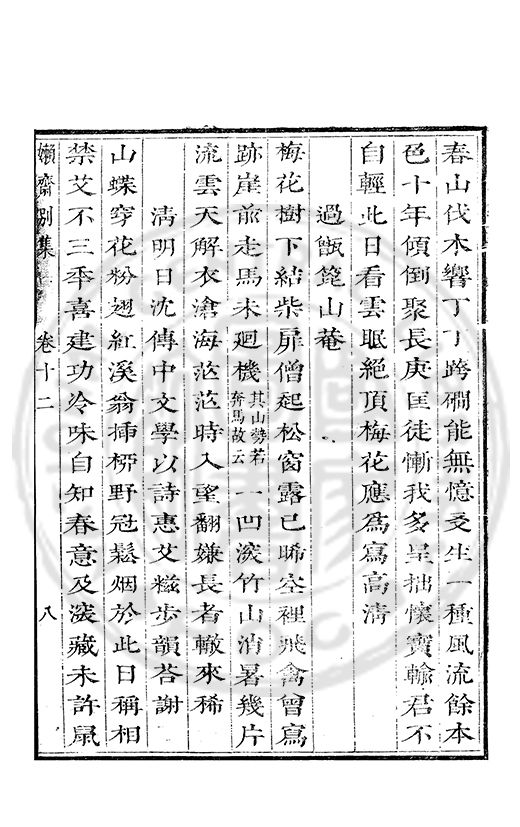 春山伐木響丁丁跨磵能無憶友生一種風流餘本
色十年傾倒聚長庚匡徒慚我多呈拙懷寶輸君不
自輕此日看雲眠絕頂梅花應為寫高清
過甑箄山菴
梅花樹下結柴扉僧起松窗露已晞空裡飛禽曾寫
跡崖前走馬未廻機其山勢若奔馬故云一凹深竹山消暑幾片
流雲天解衣滄海茫茫時入望翻嫌長者轍來稀
清明日沈傳中文學以詩惠艾糍步韻荅謝
山蝶穿花粉翅紅溪翁揷桺野冠鬆烟於此日稱相
禁艾不三年喜建功冷味自知春意及深藏未許鼠
嬾齋別集 卷十二 八